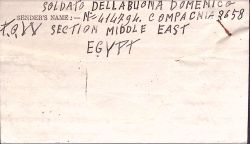 SOLDATO DELLABUONA DOMENICO
SENDER'S NAME:— Nº 414794. COMPAGNIA 2658
SECTION MIDDLE EAST
EGYPT